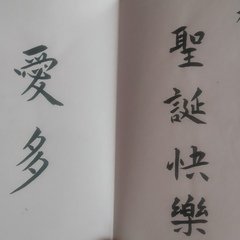 聖誕快樂
愛多